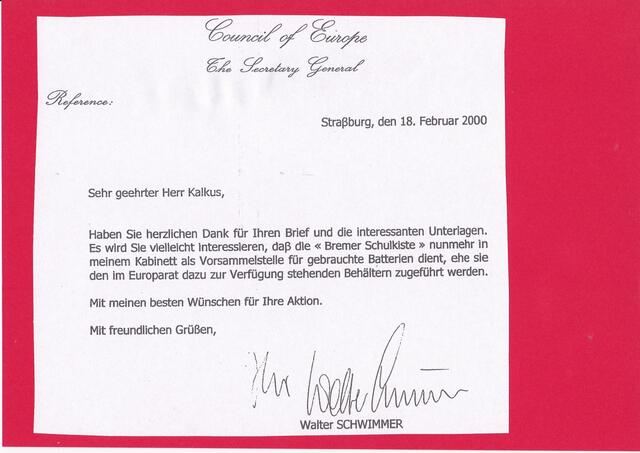 Council of Europe
The Secretary General
Reference:
Straβburg, den 18. Februar 2000
Sehr geehrter Herr Kalkus,
Haben Sie herzlichen Dank für Ihren Brief und die interessanten Unterlagen.
Es wird Sie vielleicht interessieren, daß die « Bremer Schulkiste » nunmehr in
meinem Kabinett als Vorsammelstelle für gebrauchte Batterien dient, ehe sie
den im Europarat dazu zur Verfügung stehenden Behältern zugeführt werden.
Mit meinen besten Wünschen für Ihre Aktion.
Mit freundlichen Grüßen,
Ihr Walter Schwimmer
Walter SCHWIMMER